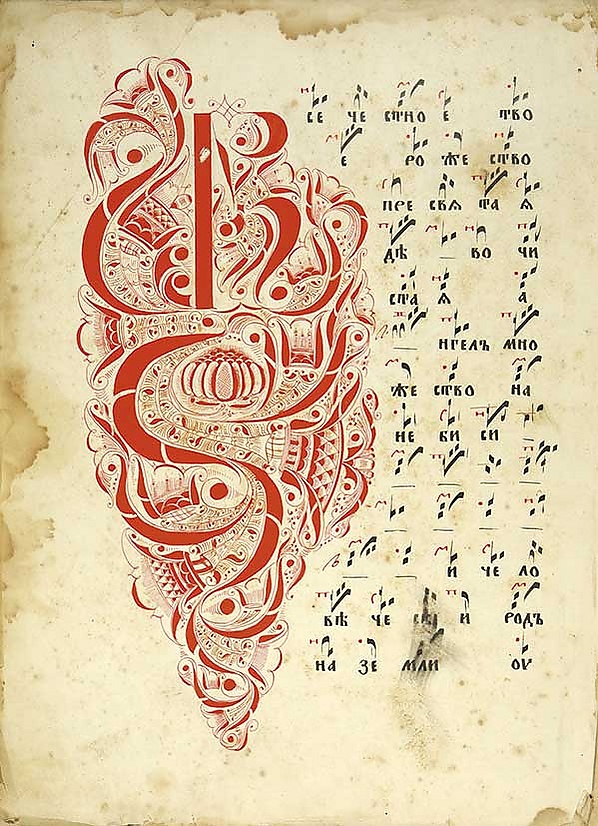 ВСЕ ЧЕ СТНО Е ТВО
Е РО ЖЕ СТВО
ПРЕ СВѦ ТА Ѧ
ДѢ ВО ЧИ
СТА Ѧ А
НГЕЛЪ МНО
ЖЕ СТВО НА
НЕ БИ СИ
И ЧЕ ЛО
ВѢ ЧЕ И РОДЪ
НА ЗЕ МЛИ ОУ